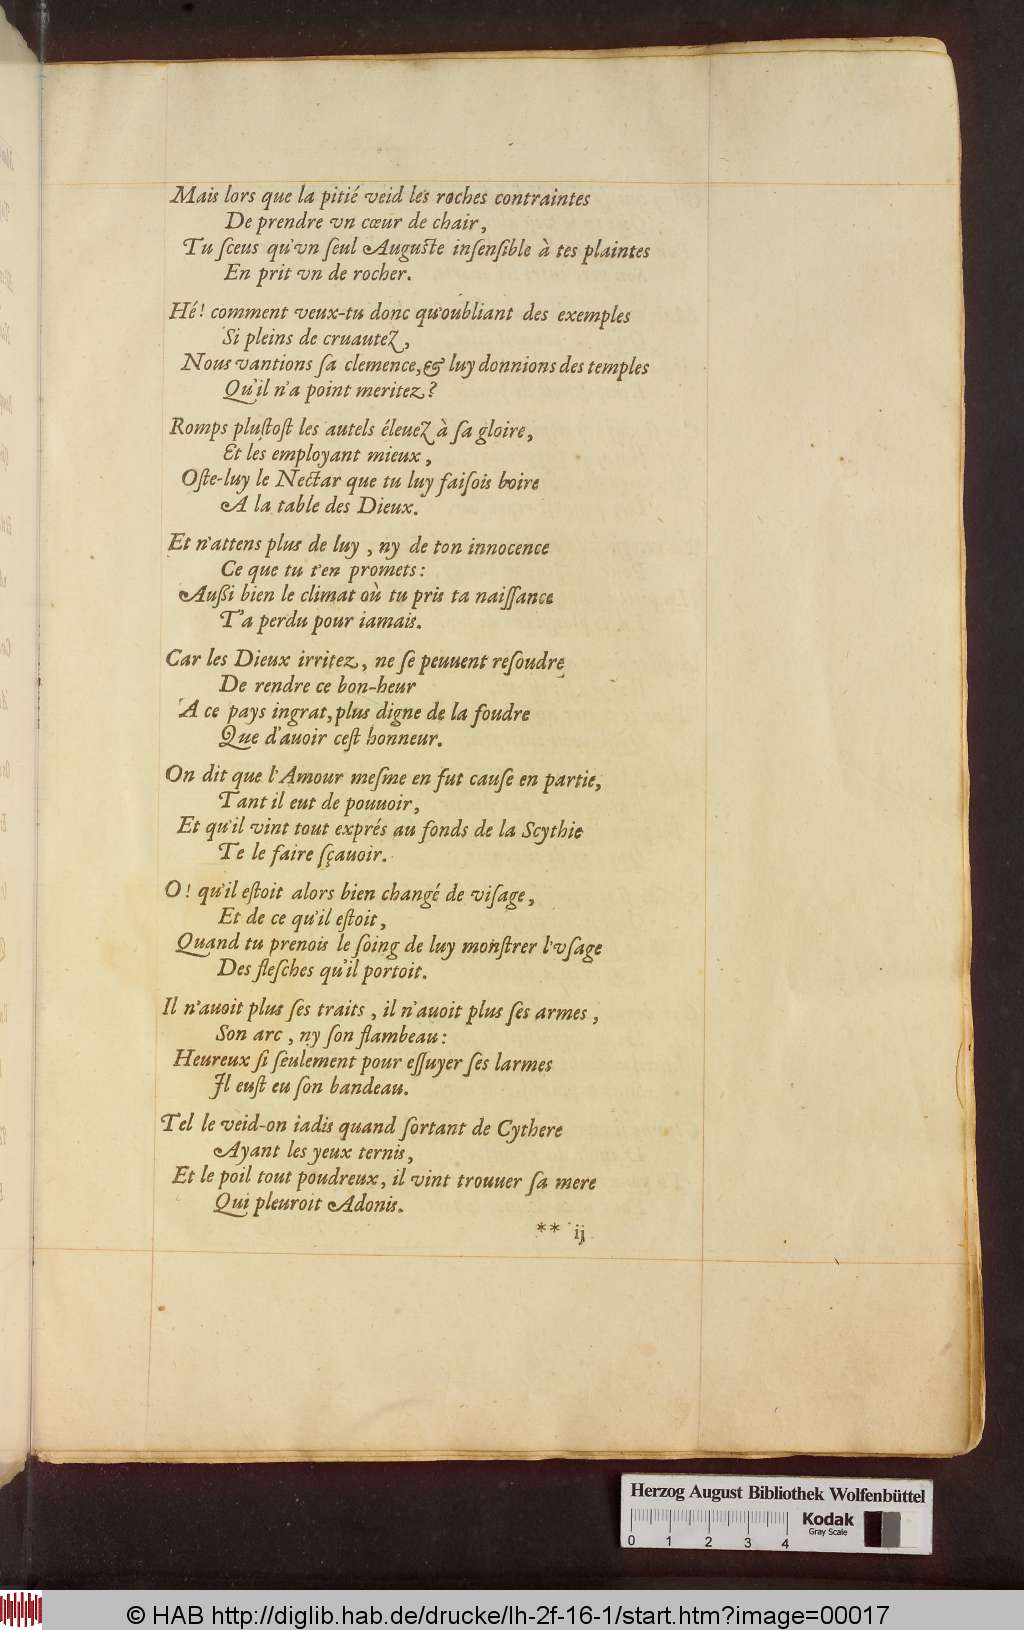 Mais lors que la pitié veid les roches contraintes
De prendre vn cœur de chair,
Tu ſceus qu'vn ſeul Auguſte inſenſible à tes plaintes
En prit vn de rocher.
Hé! comment veux-tu donc qu'oubliant des exemples
Si pleins de cruautez,
Nous vantions ſa clemence, & luy donnions des temples
Qu'il n'a point meritez?
Romps pluſtoſt les autels éleuez à ſa gloire,
Et les employant mieux,
Oſte-luy le Nectar que tu luy faiſois boire
A la table des Dieux.
Et n'attens plus de luy, ny de ton innocence
Ce que tu t'en promets:
Auſſi bien le climat où tu pris ta naiſſance
T'a perdu pour iamais.
Car les Dieux irritez, ne ſe peuuent reſoudre
De rendre ce bon-heur
A ce pays ingrat, plus digne de la foudre
Que d'auoir ceſt honneur.
On dit que l'Amour meſme en fut cauſe en partie,
Tant il eut de pouuoir,
Et qu'il vint tout exprés au fonds de la Scythie
Te le faire ſçauoir.
O! qu'il eſtoit alors bien changé de viſage,
Et de ce qu'il eſtoit,
Quand tu prenois le ſoing de luy monſtrer l'vſage
Des fleſches qu'il portoit.
Il n'auoit plus ſes traits, il n'auoit plus ſes armes,
Son arc, ny ſon flambeau:
Heureux ſi ſeulement pour eſſuyer ſes larmes
Il euſt eu ſon bandeau.
Tel le veid-on iadis quand ſortant de Cythere
Ayant les yeux ternis,
Et le poil tout poudreux, il vint trouuer ſa mere
Qui pleuroit Adonis.
** ij
Herzog August Bibliothek Wolfenbüttel
Kodak
Gray Scale
0 1 2 3 4
© HAB http://diglib.hab.de/drucke/lh-2f-16-1/start.htm?image=00017